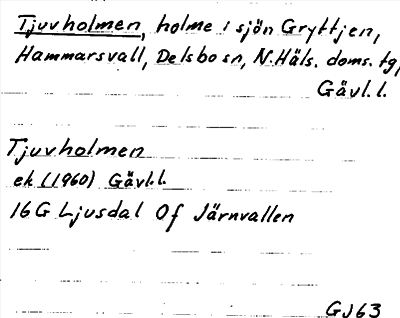 Tjuvholmen, holme i sjön Gryttjen,
Hammarsvall, Delsbo sn, N.Häls. doms. tg,
Gävl.l.
Tjuvholmen
ek (1960) Gävl.l.
16G Ljusdal Of Järnvallen
GJ63